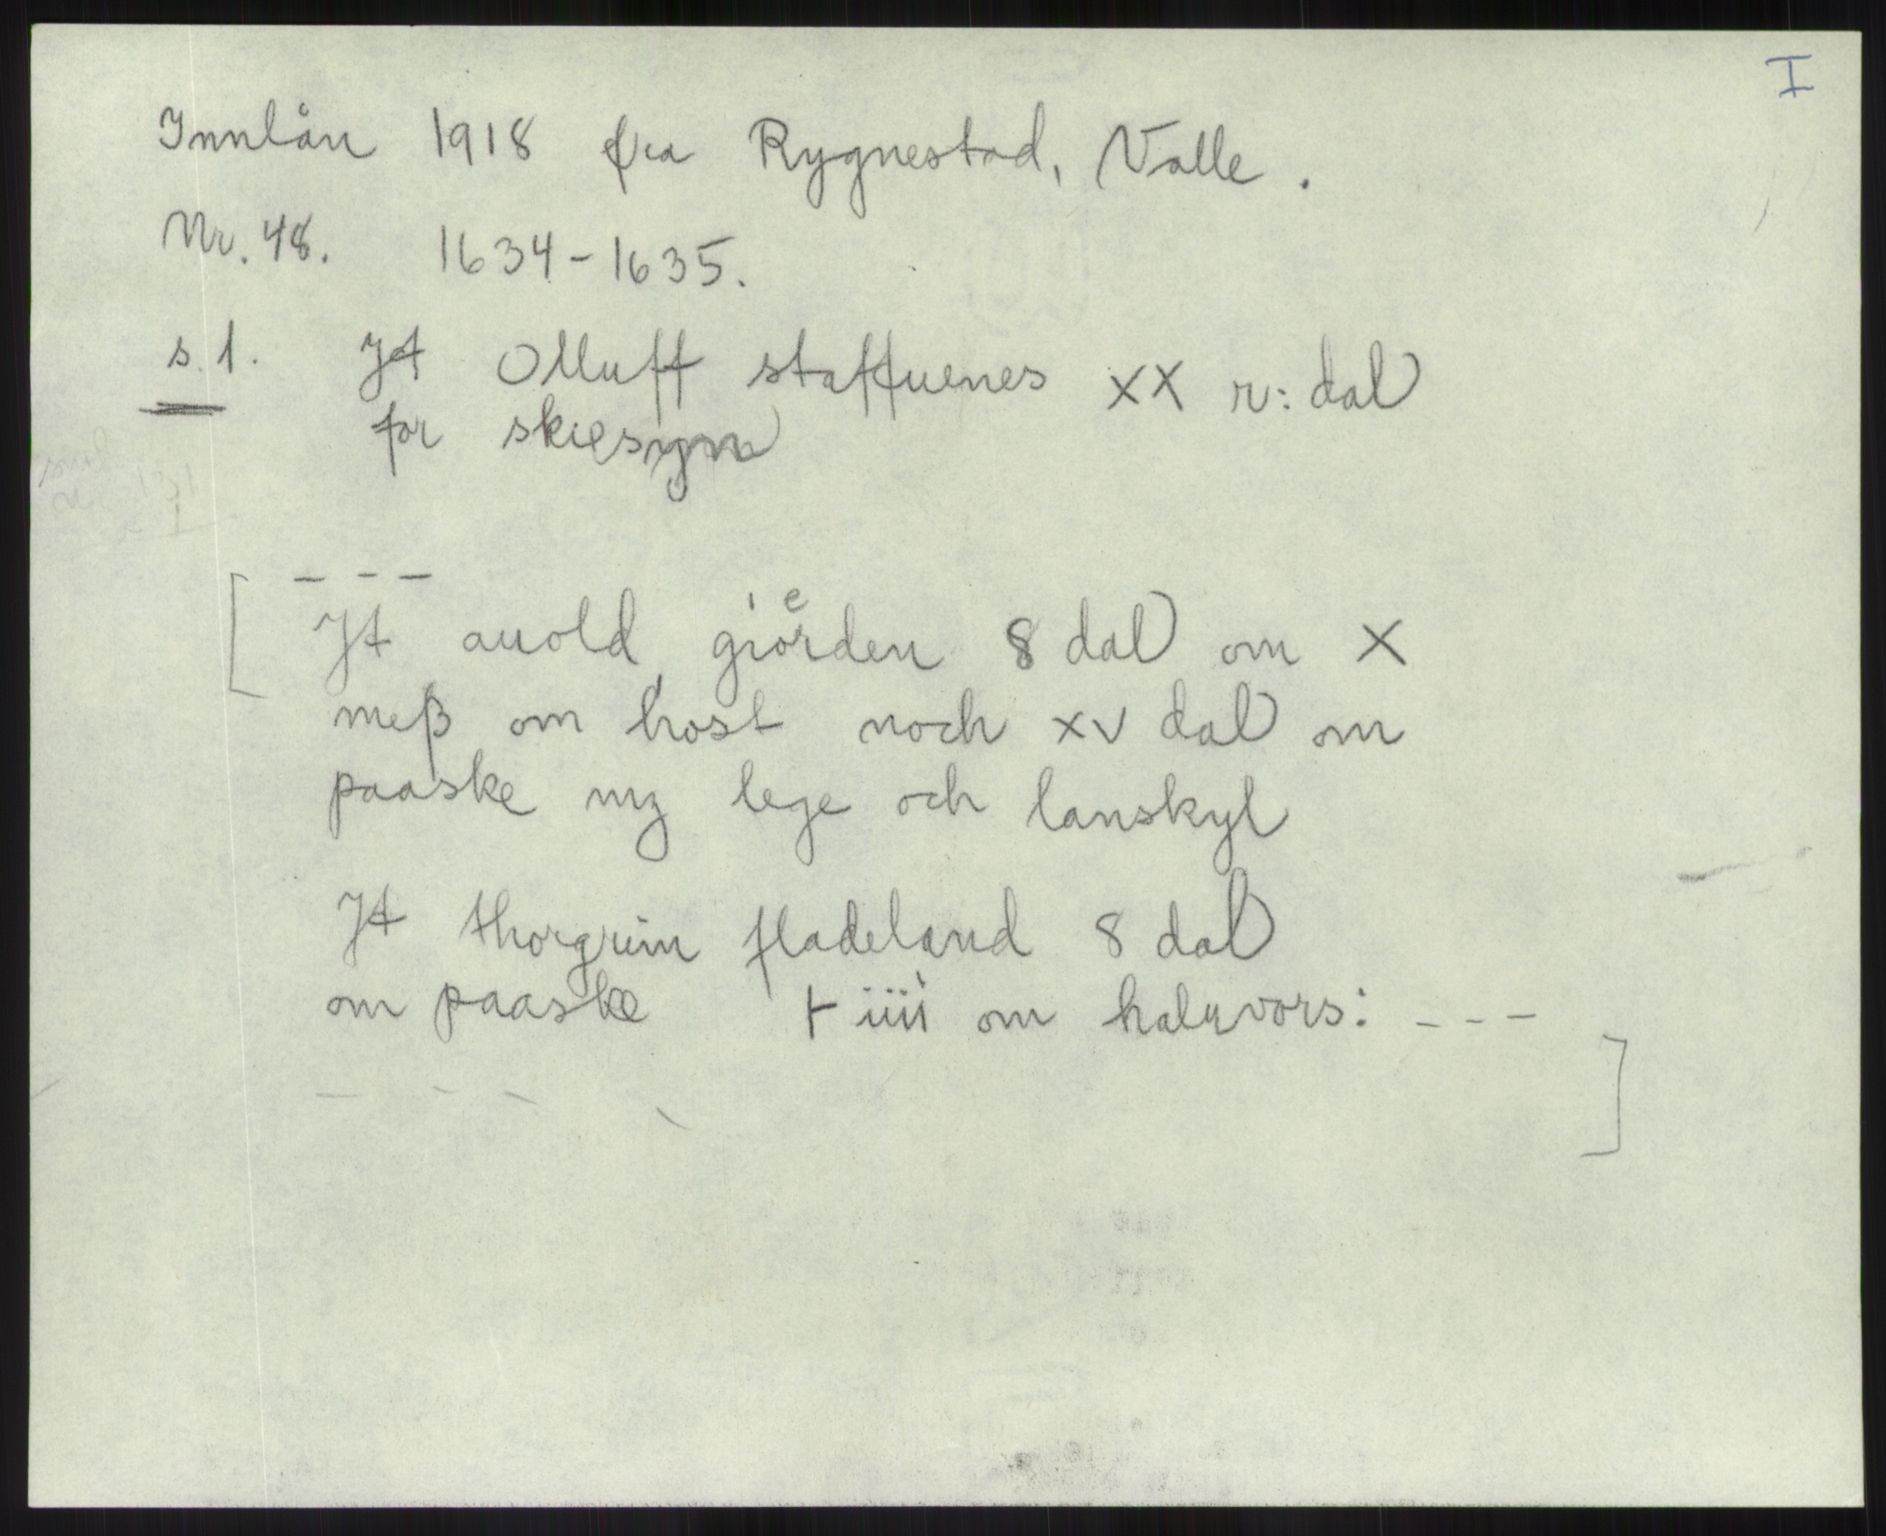 I
Innlån 1918 fra Rygnestad, Valle.
Nr. 48. 1634-1635.
s. 1. Jt Olluff staffuenes XX r: dal
for skiesyn
[ - - -
Jt auold giørden 8 dal om X
meß om høst noch xv dal om
paaske mz lege och lanskyl
Jt thorgrim fladeland 8 dal
om paaske t iiii om haluvors: - - -
]